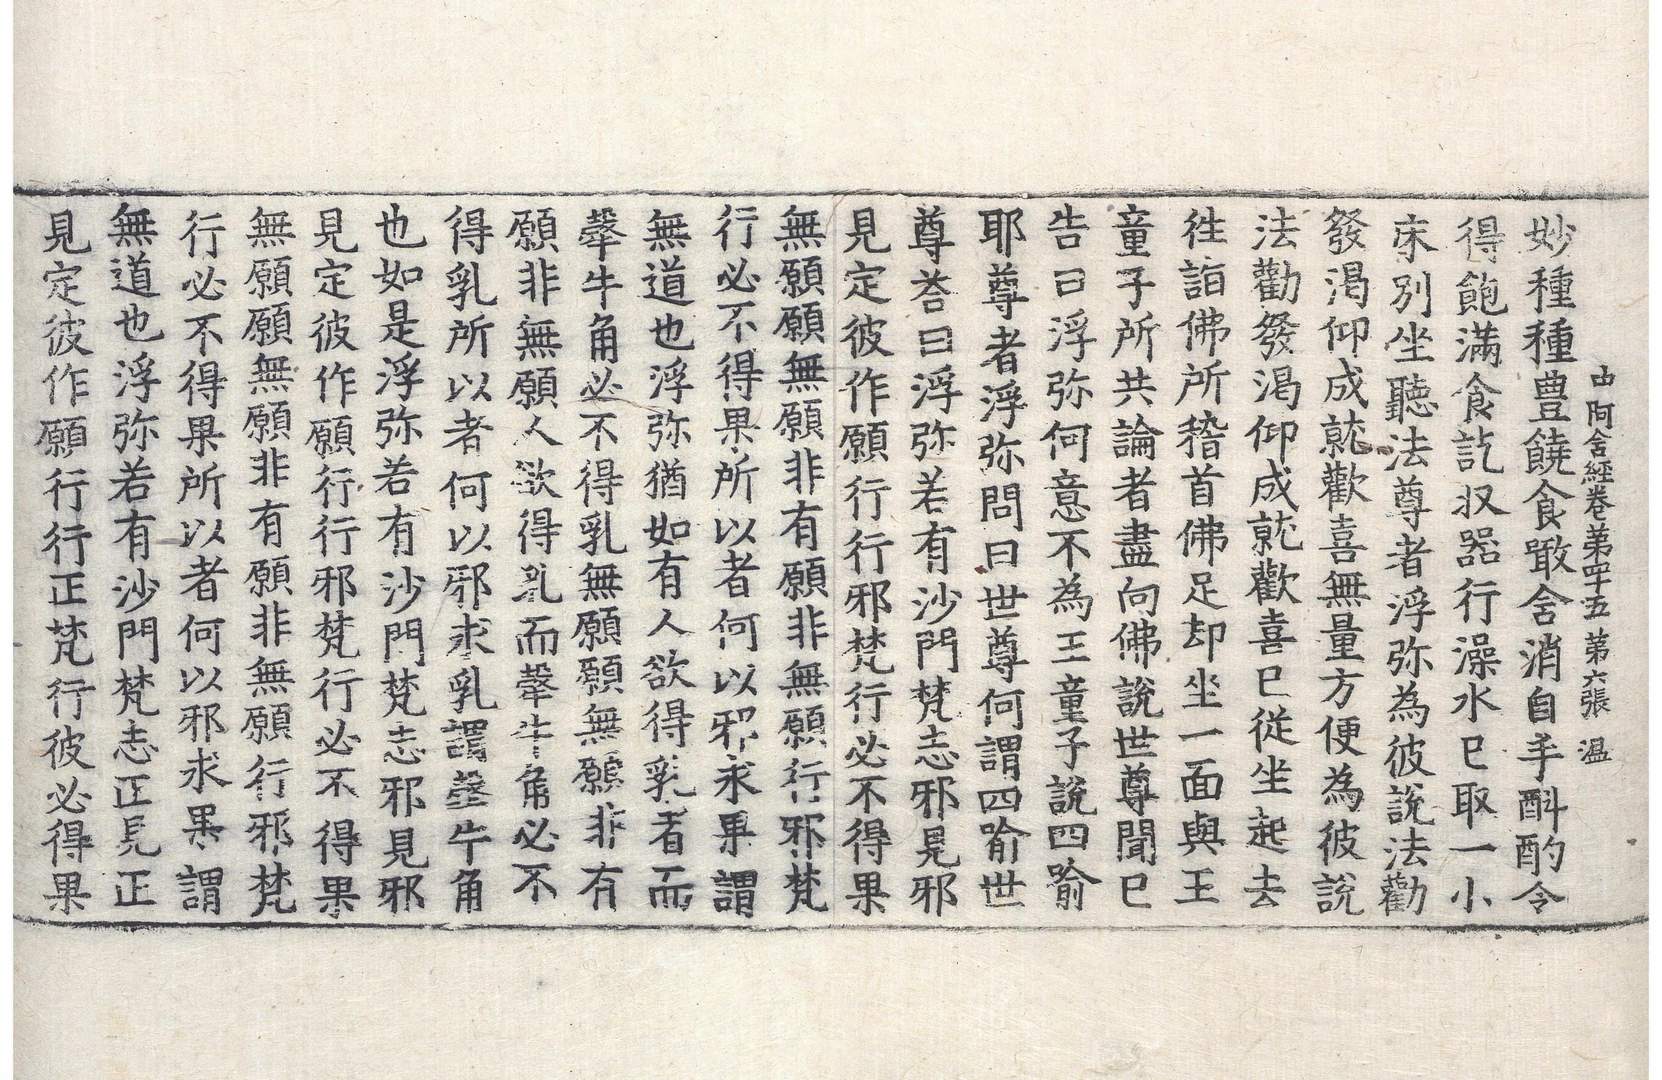 中阿含經卷第四十五 第六張 温
妙種種豊饒食噉含消自手斟酌令
得飽滿食訖収器行澡水已取一小
床別坐聽法尊者浮弥為彼說法勸
發渴仰成就歡喜無量方便為彼說
法勸發渴仰成就歡喜已從坐起去
徃詣佛所稽首佛足却坐一面與王
童子所共論者盡向佛說世尊聞已
告曰浮弥何意不為王童子說四喻
耶尊者浮弥問曰世尊何謂四喻世
尊荅曰浮弥若有沙門梵志邪見邪
見定彼作願行行邪梵行必不得果
無願願無願非有願非無願行邪梵
行必不得果所以者何以邪求果謂
無道也浮弥猶如有人欲得乳者而
𤛗牛角必不得乳無願願無願非有
願非無願人欲得乳而𤛗牛角必不
得乳所以者何以邪求乳謂𤛗牛角
也如是浮弥若有沙門梵志邪見邪
見定彼作願行行邪梵行必不得果
無願願無願非有願非無願行邪梵
行必不得果所以者何以邪求果謂
無道也浮弥若有沙門梵志正見正
見定彼作願行行正梵行彼必得果